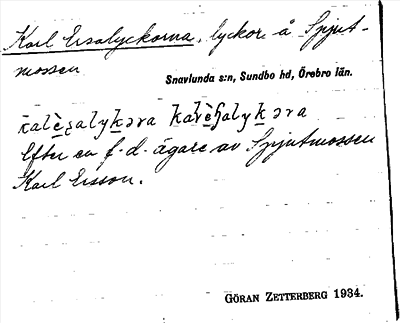 Karl Ersalyckorna, lyckor å Spjut-
mossen
Snavlunda s:n, Sundbo hd, Örebro län.
Efter en f. d. ägare av Spjutmossen
Karl Ersson.
GÖRAN ZETTERBERG 1934.